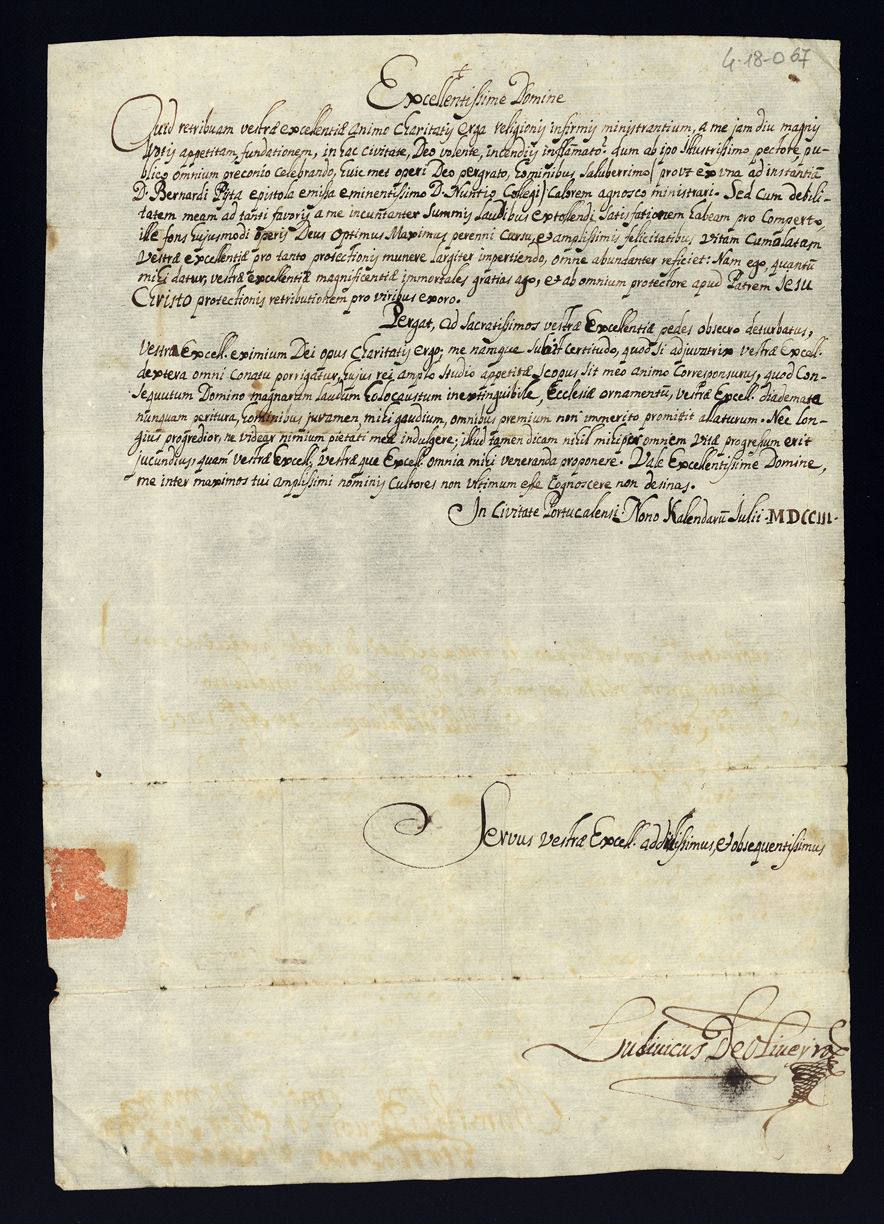 4-18-0 67
Excellentissime Domine
Quid retribuam vestræ excellentiæ animo Charitatis erga religionis infirmis ministrantium, a me jam diu magnis
votis appetitam fundationem, in hac civitate, Deo volente, incendijs inflamato? dum ab ipo Illustrissimo pectore, pu-
blico omnium preconio celebrando, huic met operi Deo pergrato, hominibus saluberrimo (prout ex una ad instantiã
D. Bernardi Pijta epistola emissa eminentissimo D. Nuntio Collegi) Calorem agnosco ministrari. Sed cum debili-
tatem meam ad tanti favoris a me incuntanter summis laudibus extollendi, satisfationem habeam pro Comperto
ille fons hujusmodi operis Deus Optimus Maximus perenni Cursu, et amplissimis felicitatibus vitam Cumulatam
Vestræ excellentiæ pro tanto protectionis munere largiter impertiendo, omne abundanter reficiet: Nam ego, quantũ
mihi datur, vestræ excellentiæ magnificentiæ immortales gratias ago, et ab omnium protectore apud Patrem Iesu
Christo protectionis retributionem pro viribus exoro.
Pergat, ad Sacratissimos vestræ Excellentiæ pedes obsecro deturbatus,
Vestra Excell. eximium Dei opus Charitatis ergo; me namque subit Certitudo, quod si adjuvatrix vestræ Excell.
dextera omni Conatu porrigatur, hujus rei amplo studio appetitæ scopus sit meo animo Corresponsurus, quod Con-
sequutum Domino magnarum laudum holocaustum inextinguibile, Ecclesiæ ornamentũ, vestræ Excell. diademata
nunquam peritura, hominibus juvamen, mihi gaudium, omnibus premium non immerito promittit allaturum. Nec lon-
gius progredior, ne videar nimium pietati meæ indulgere; illud tamen dicam nihil mihi per omnem vitæ progressum erit
jucundius, quam vestræ Excell., vestræque Excell. omnia mihi veneranda proponere. Vale Excellentissime Domine,
me inter maximos tui amplissimi nominis Cultores non ultimum esse Cognoscere non desinas.
In Civitate Portucalensi. Nono Kalendarũ Julii. MDCCIII.
Servus vestræ Excell. addictissimus, et obsequentissimus
Ludivicus De Oliveyra